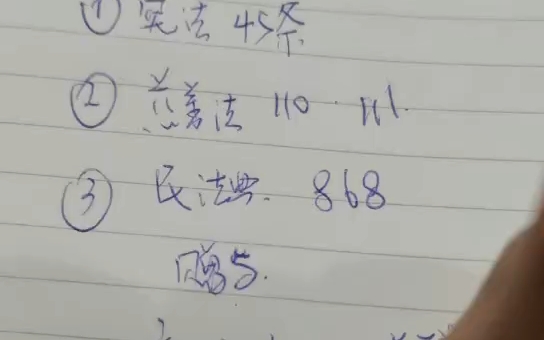 ① 宪法 45条
② 慈善法 110 · 111.
③ 民法典. 868
赠与.